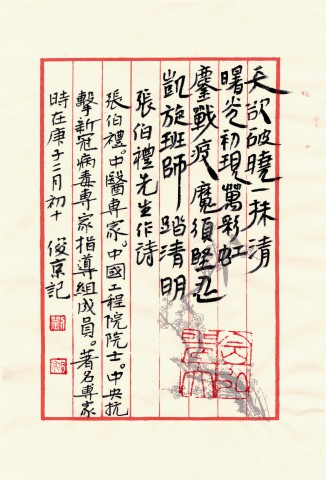 天欲破曉一抹清
曙光初現萬彩虹
鏖戰疫魔須堅忍
凱旋班師踏清明
張伯禮先生作詩
張伯禮。中醫專家。中國工程院院士。中央抗
擊新冠病毒專家指導組成員。著名專家
時在庚子二月初十 俊京記